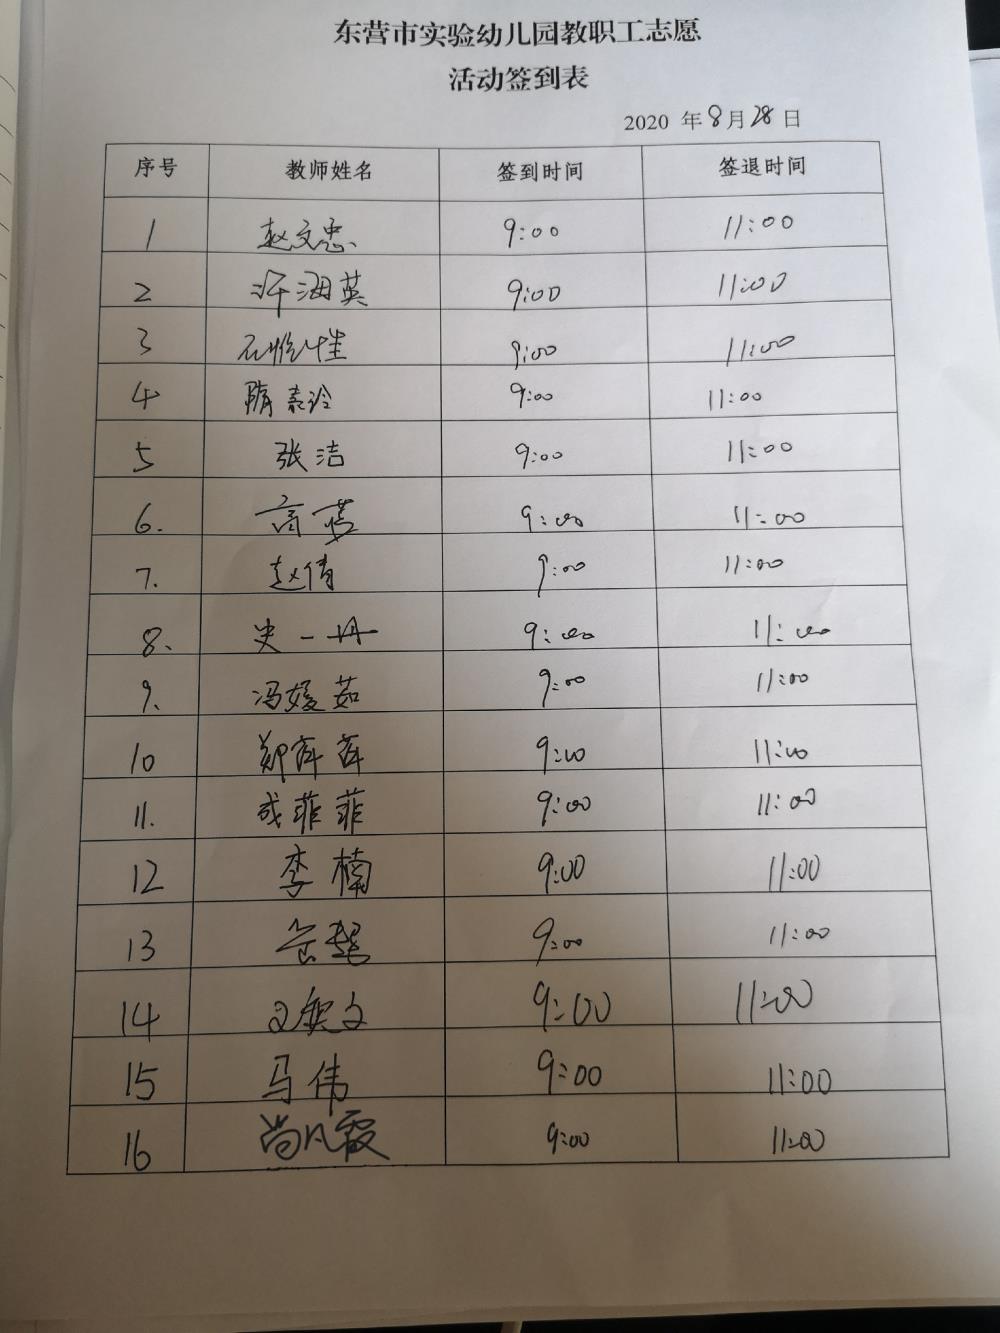 东营市实验幼儿园教职工志愿
活动签到表
2020 年 8月 28 日
序号 教师姓名 签到时间 签退时间
1 赵文忠 9:00 11:00
2 许海英 9:00 11:00
3 9:00 11:00
4 隋素玲 9:00 11:00
5 张洁 9:00 11:00
6. 9:00 11:00
7. 赵倩 9:00 11:00
8. 史一丹 9:00 11:00
9. 冯媛茹 9:00 11:00
10 郑萍萍 9:00 11:00
11. 成菲菲 9:00 11:00
12 李楠 9:00 11:00
13 9:00 11:00
14 9:00 11:00
15 马伟 9:00 11:00
16 尚凡霞 9:00 11:00